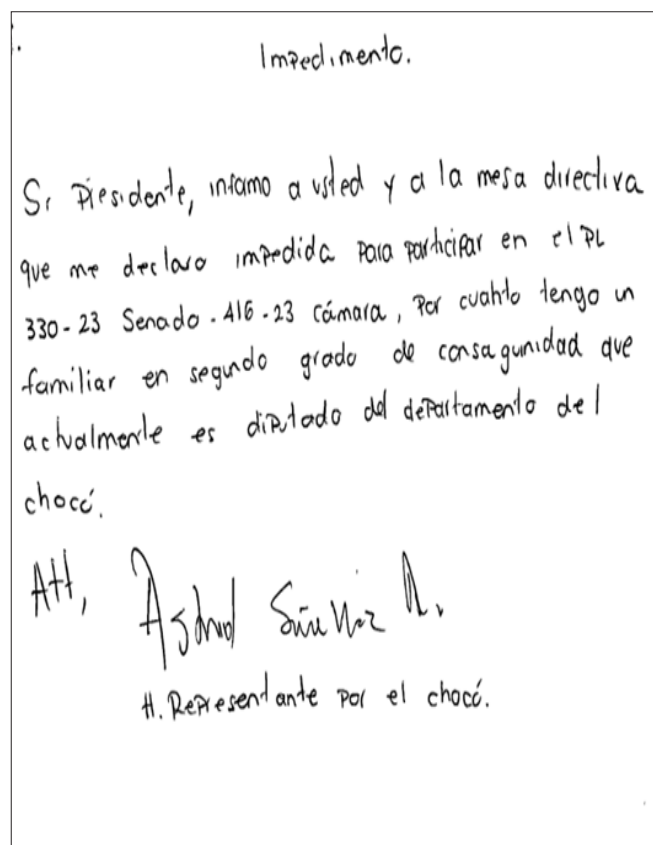 Impedimento.
Sr Presidente, informo a usted y a la mesa directiva
que me declaro impedida para participar en el PL
330-23 Senado.416-23 cámara, por cuanto tengo un
familiar en segundo grado de consagunidad que
actualmente es diputado del departamento del
chocó.
Att,
Astrid
H. Representante por el chocó.